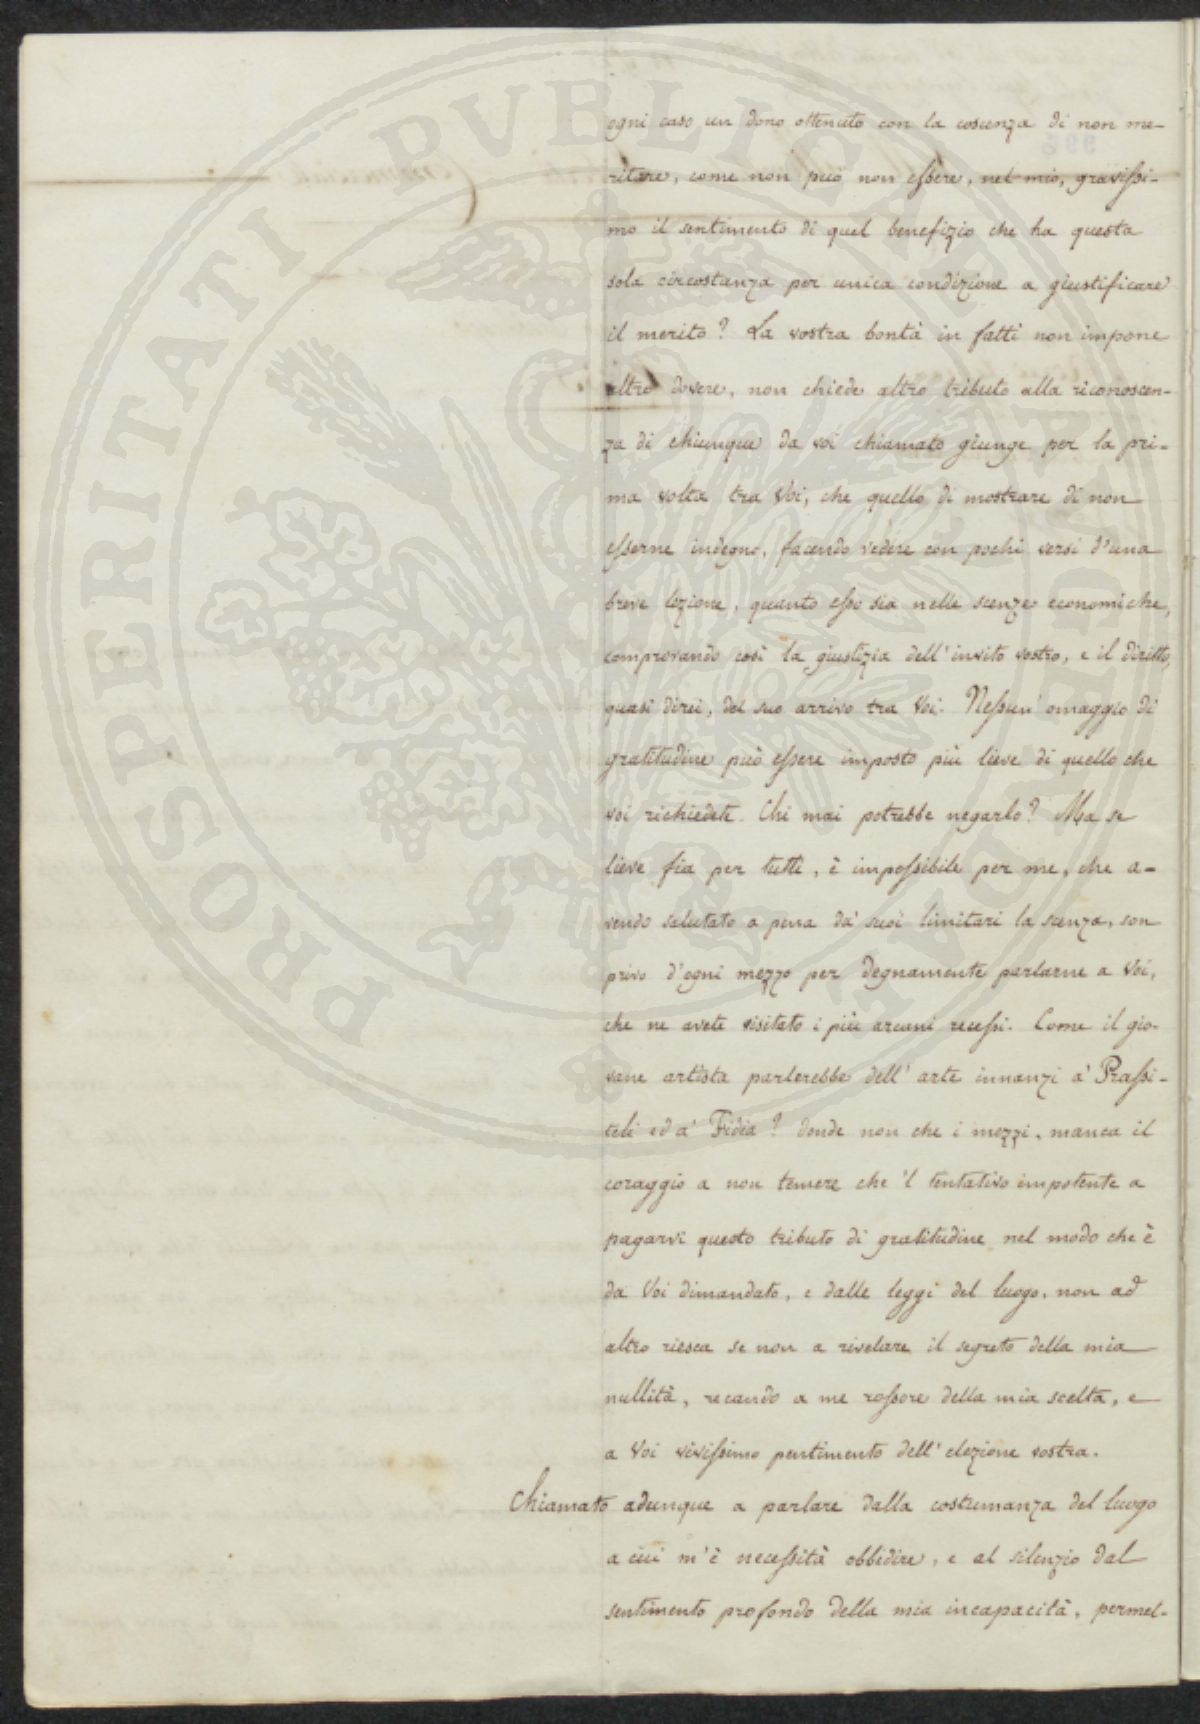 ogni caso un dono ottenuto con la coscenza di non me-
ritare, come non può non essere, nel mio, gravissi-
mo il sentimento di quel benefizio che ha questa
sola circostanza per unica condizione a giustificare
il merito? La vostra bontà in fatti non impone
altro dovere, non chiede altro tributo alla riconoscen-
za di chiunque da voi chiamato giunge per la pri-
ma volta tra Voi, che quello di mostrare di non
esserne indegno, facendo vedere con pochi versi d'una
breve lezione, quanto esso sia nelle scenze economiche,
comprovando così la giustizia dell'invito vostro, e il diritto,
quasi direi, del suo arrivo tra Voi. Nessun'omaggio di
gratitudine può essere imposto più lieve di quello che
voi richiedete. Chi mai potrebbe negarlo? Ma se
lieve fia per tutti, è impossibile per me, che a-
vendo salutato a pena da' suoi limitari la scenza, son
privo d'ogni mezzo per degnamente parlarne a Voi,
che ne avete visitato i più arcani recessi. Come il gio-
vane artista parlerebbe dell'arte innanzi a' Prassi-
teli ed a' Fidia? donde non che i mezzi, manca il
coraggio a non temere che 'l tentativo impotente a
pagarvi questo tributo di gratitudine nel modo che è
da Voi dimandato, e dalle leggi del luogo, non ad
altro riesca se non a rivelare il segreto della mia
nullità, recando a me rossore della mia scelta, e
a Voi vivissimo pentimento dell'elezione vostra.
Chiamato adunque a parlare dalla costumanza del luogo
a cui m'è necessità obbidire, e al silenzio dal
sentimento profondo della mia incapacità, permet-
PROSPERITATI PUBLICAE AUGENDAE